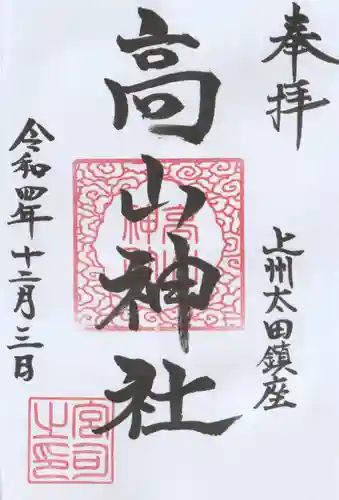 奉拝
上州太田鎮座
高山神社
高山神社
令和四年十二月三日
宮司之印